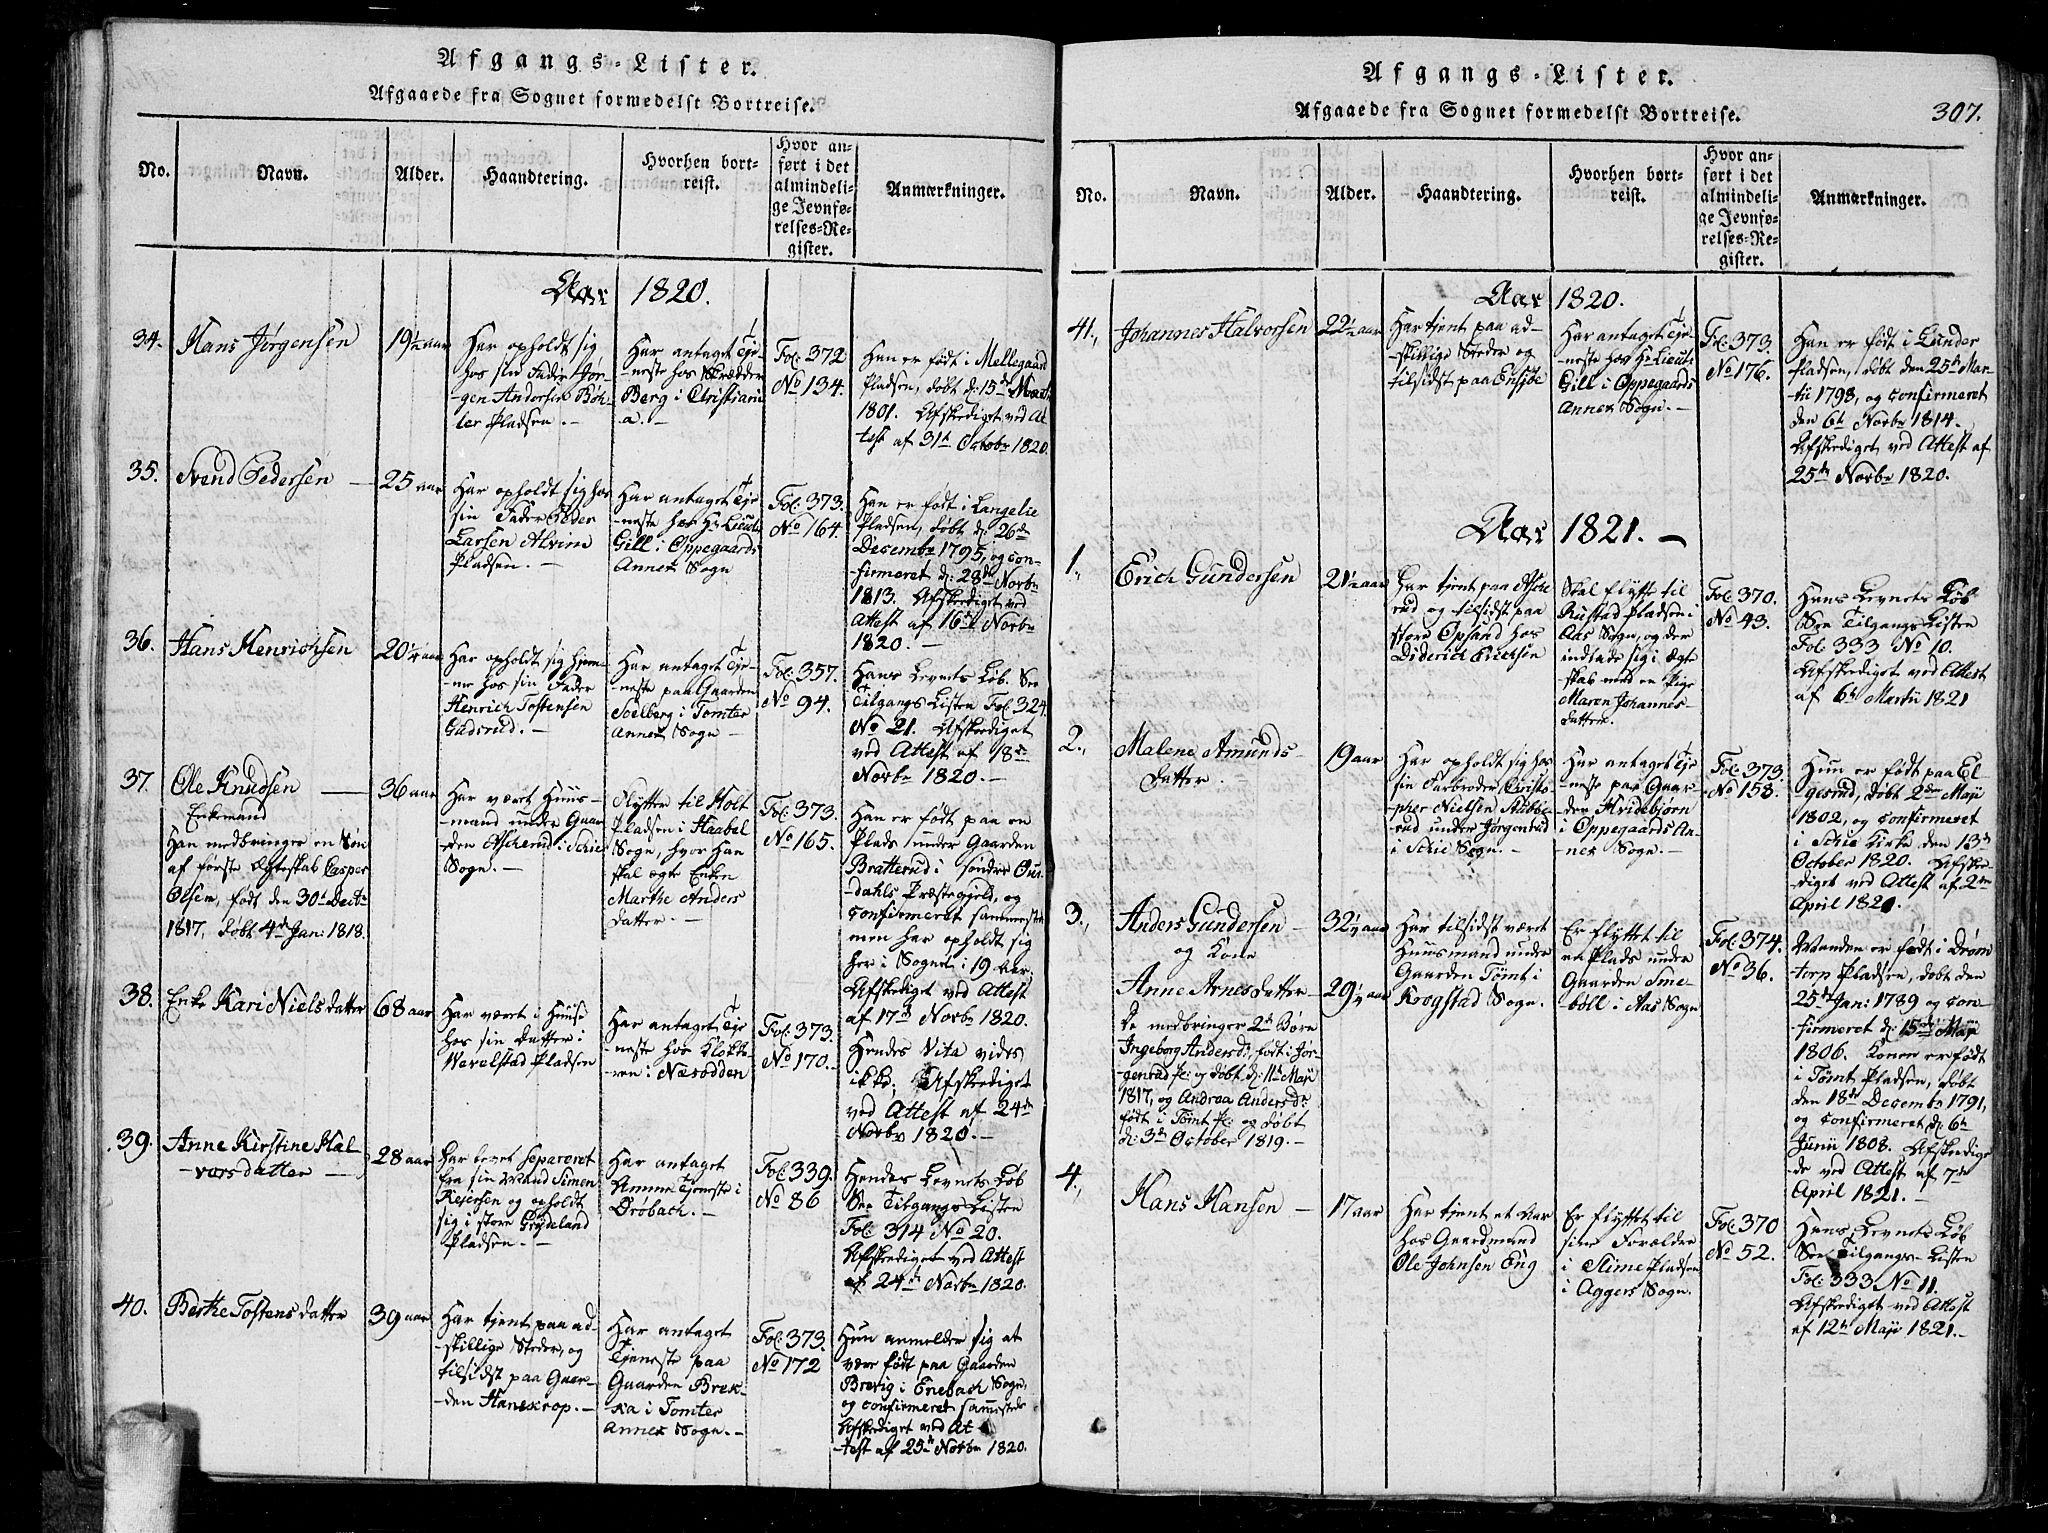 Afgangs-Lister.
Afgaaede fra Sognet formedelst Bortreise.
No.
Navn.
Alder.
Haandtering.
Hvorhen bort-
reist.
Hvor an-
ført i det
almindeli-
ge Jevnfø-
relses-Re-
gister.
Anmærkninger.
Aar 1820.
34.
Hans Jørgensen
19½ aar
Har opholdt sig
hos sin Fader Jør-
gen Andersen Bøh-
ler Pladsen.-
Har antaget Tje-
-neste hos Skrædder
Berg i Christiani-
a.-
Fol: 372
No 134.
Han er født i Mellegaard
Pladsen, døbt d: 15de Martii
1801. Afskediget ved At-
test af 31te Octobr 1820.
35.
Svend Pedersen
25 aar
Har opholdt sig hos
sin Fader Peder
Larsen Alvim
Pladsen.-
Har antaget Tje-
-neste hos Hr Lieut:
Gill i Oppegaards
Annex Sogn
Fol: 373.
No 164.
Han er født i Langelie
Pladsen, døbt d: 26de
Decembr 1795, og con-
-firmeret d: 28de Novbr
1813. Afskediget ved
Attest af 16de Novbr
1820.-
36.
Hans Henrichsen
20¼ aar
Har opholdt sig hjem-
-me hos sin Fader
Henrich Tostensen
Gadsrud.-
Har antaget Tje-
-neste paa Gaarden
Solberg i Tomter
Annex Sogn-
Fol: 357.
No 94.
Hans Levnets Løb. See
Tilgangs Listen Fol: 324.
No 21. Afskediget
ved Attest af 18de
Novbr 1820.-
37.
Ole Knudsen
Enkemand
Han medbringer en Søn
af første Ægteskab Casper
Olsen, født den 30te Decbr
1817, døbt 4de Jan: 1818.
36 aar
Har været Huus-
-mand under Gaar-
-den Ascherud i Schie
Sogn.-
Flytter til Holt
Pladsen i Haabøl
Sogn, hvor han
skal ægte Enken
Marthe Anders
datter.-
Fol: 373.
No 165.
Han er født paa en
Plads under Gaarden
Bratterud i søndre Our-
-dahls Præstegjeld, og
confirmeret sammesteds
men har opholdt sig
her i Sognet i 19 aar.
Afskediget ved Attest
af 17de Novbr 1820.
38.
Enke Kari Niels datter
68 aar
Har været i Huuse
hos sin Datter i
Wevelstad Pladsen
Har antaget Tje
-neste hos Klokke-
-ren i Næsodden
Fol: 373.
No 170.
Hendes Vita vides
ikke. Afskediget
ved Attest af 24de
Novbr 1820.-
39.
Anne Kirstine Hal-
-vors datter
28 aar
Har levet separeret
fra sin Mand Simen
Rejersen og opholdt
sig i store Grydeland
Pladsen.-
Har antaget
Amme Tjeneste i
Drøbach.-
Fol: 339.
No 86
Hendes Levnets Løb
See Tilgangs Listen
Fol: 314 No 20.
Afskediget ved Attest
af 24de Novbr 1820.
40.
Berthe Tostens datter
39 aar
Har tjent paa ad-
-skillige Steder, og
tilsidst paa Gaar-
-den Hanekrop.-
Har antaget
Tjeneste paa
Gaarden Brek-
-ka i Tomter
Annex Sogn.-
Fol: 373.
No 172
Hun anmelder sig at
være født paa Gaarden
Brevig i Enebach Sogn,
og confirmeret sammesteds
Afskediget ved At-
-test af 25de Novbr 1820.
Afgangs-Lister.
Afgaaede fra Sognet formedelst Bortreise.
307.
No.
Navn.
Alder.
Haandtering.
Hvorhen bort-
reist.
Hvor an-
ført i det
almindeli-
ge Jevnfø-
relses-Re-
gister.
Anmærkninger.
Aar 1820.
41.,
Johannes Halvorsen
22½ aar
Har tjent paa ad-
-skillige Steder og
tilsidst paa Ensjøe
Har antaget Tje-
-neste hos Hr Lieut:
Gill i Oppegaards
Annex Sogn.-
Fol: 373.
No 176.
Han er født i Lunder
Pladsen, døbt den 25de Mar-
tii 1798, og confirmeret
den 6te Novbr 1814.-
Afskediget ved Attest af
25de Novbr 1820.
Aar 1821.-
1.,
Erich Gundersen
21½ aar
Har tjent paa Asche
rud og tilsidst paa
store Opsand hos
Diderich Erichsen
Skal flytte til
Rustad Pladsen i
Aas Sogn, og der
indlade sig i Ægte
skab med en Pige
Maren Johannes-
datter.
Fol: 370.
No 43.
Hans Levnets Løb
See Tilgangs Listen
Fol: 333 No 10.
Afskediget ved Attest
af 6te Martii 1821
2.,
Malene Amunds-
datter.
19 aar
Har opholdt sig hos
sin Farbroder Christo-
pher Nielsen Stubbe-
rud under Jørgenrud
i Schie Sogn.-
Har antaget Tje
-neste paa Gaar-
den Hvidebjørn
i Oppegaards An-
nex Sogn.-
Fol: 373.
No 158.
Hun er født paa El-
-gesrud, døbt 2den Maji
1802, og confirmeret
i Schie Kirke den 13de
October 1820. Afske-
diget ved Attest af 2den
April 1821.
3.,
Anders Gundersen-
og Kone
Anne Arnes datter-
De medbringer 2de Børn
Ingeborg Andersd:, født i Jør-
-genrud Pl: og døbt d: 11te Maji
1817, og Andrea Andersdr
født i Tømt Pl: og døbt
d: 3de October 1819.-
32¼ aar
29¼ aar
Har tilsidst været
Huusmand under
Gaarden Tømt i
Kroogstad Sogn.
Er flyttet til
en Plads under
Gaarden Sme-
bøll i Aas Sogn
Fol: 374.
No 36.
Manden er født i Drøm
torp Pladsen, døbt den
25de Jan: 1789 og con-
-firmeret d: 15de Maji
1806. Konen er født
i Tømt Pladsen, døbt
den 18de Decembr 1791,
og confirmeret d: 6te
Junii 1808. Afskedige-
de ved Attest af 7de
April 1821.-
4.,
Hans Hansen-
17 aar
Har tjent et Aar
hos Gaardmand
Ole Johnsen Eng
Er flyttet til
sine Forældre
i Slime Pladsen
i Aggers Sogn.
Fol: 370
No 52.
Hans Levnets Løb
See Tilgangs-Listen
Fol: 333 No 11.
Afskediget ved Attest
af 12te Maji 1821.-